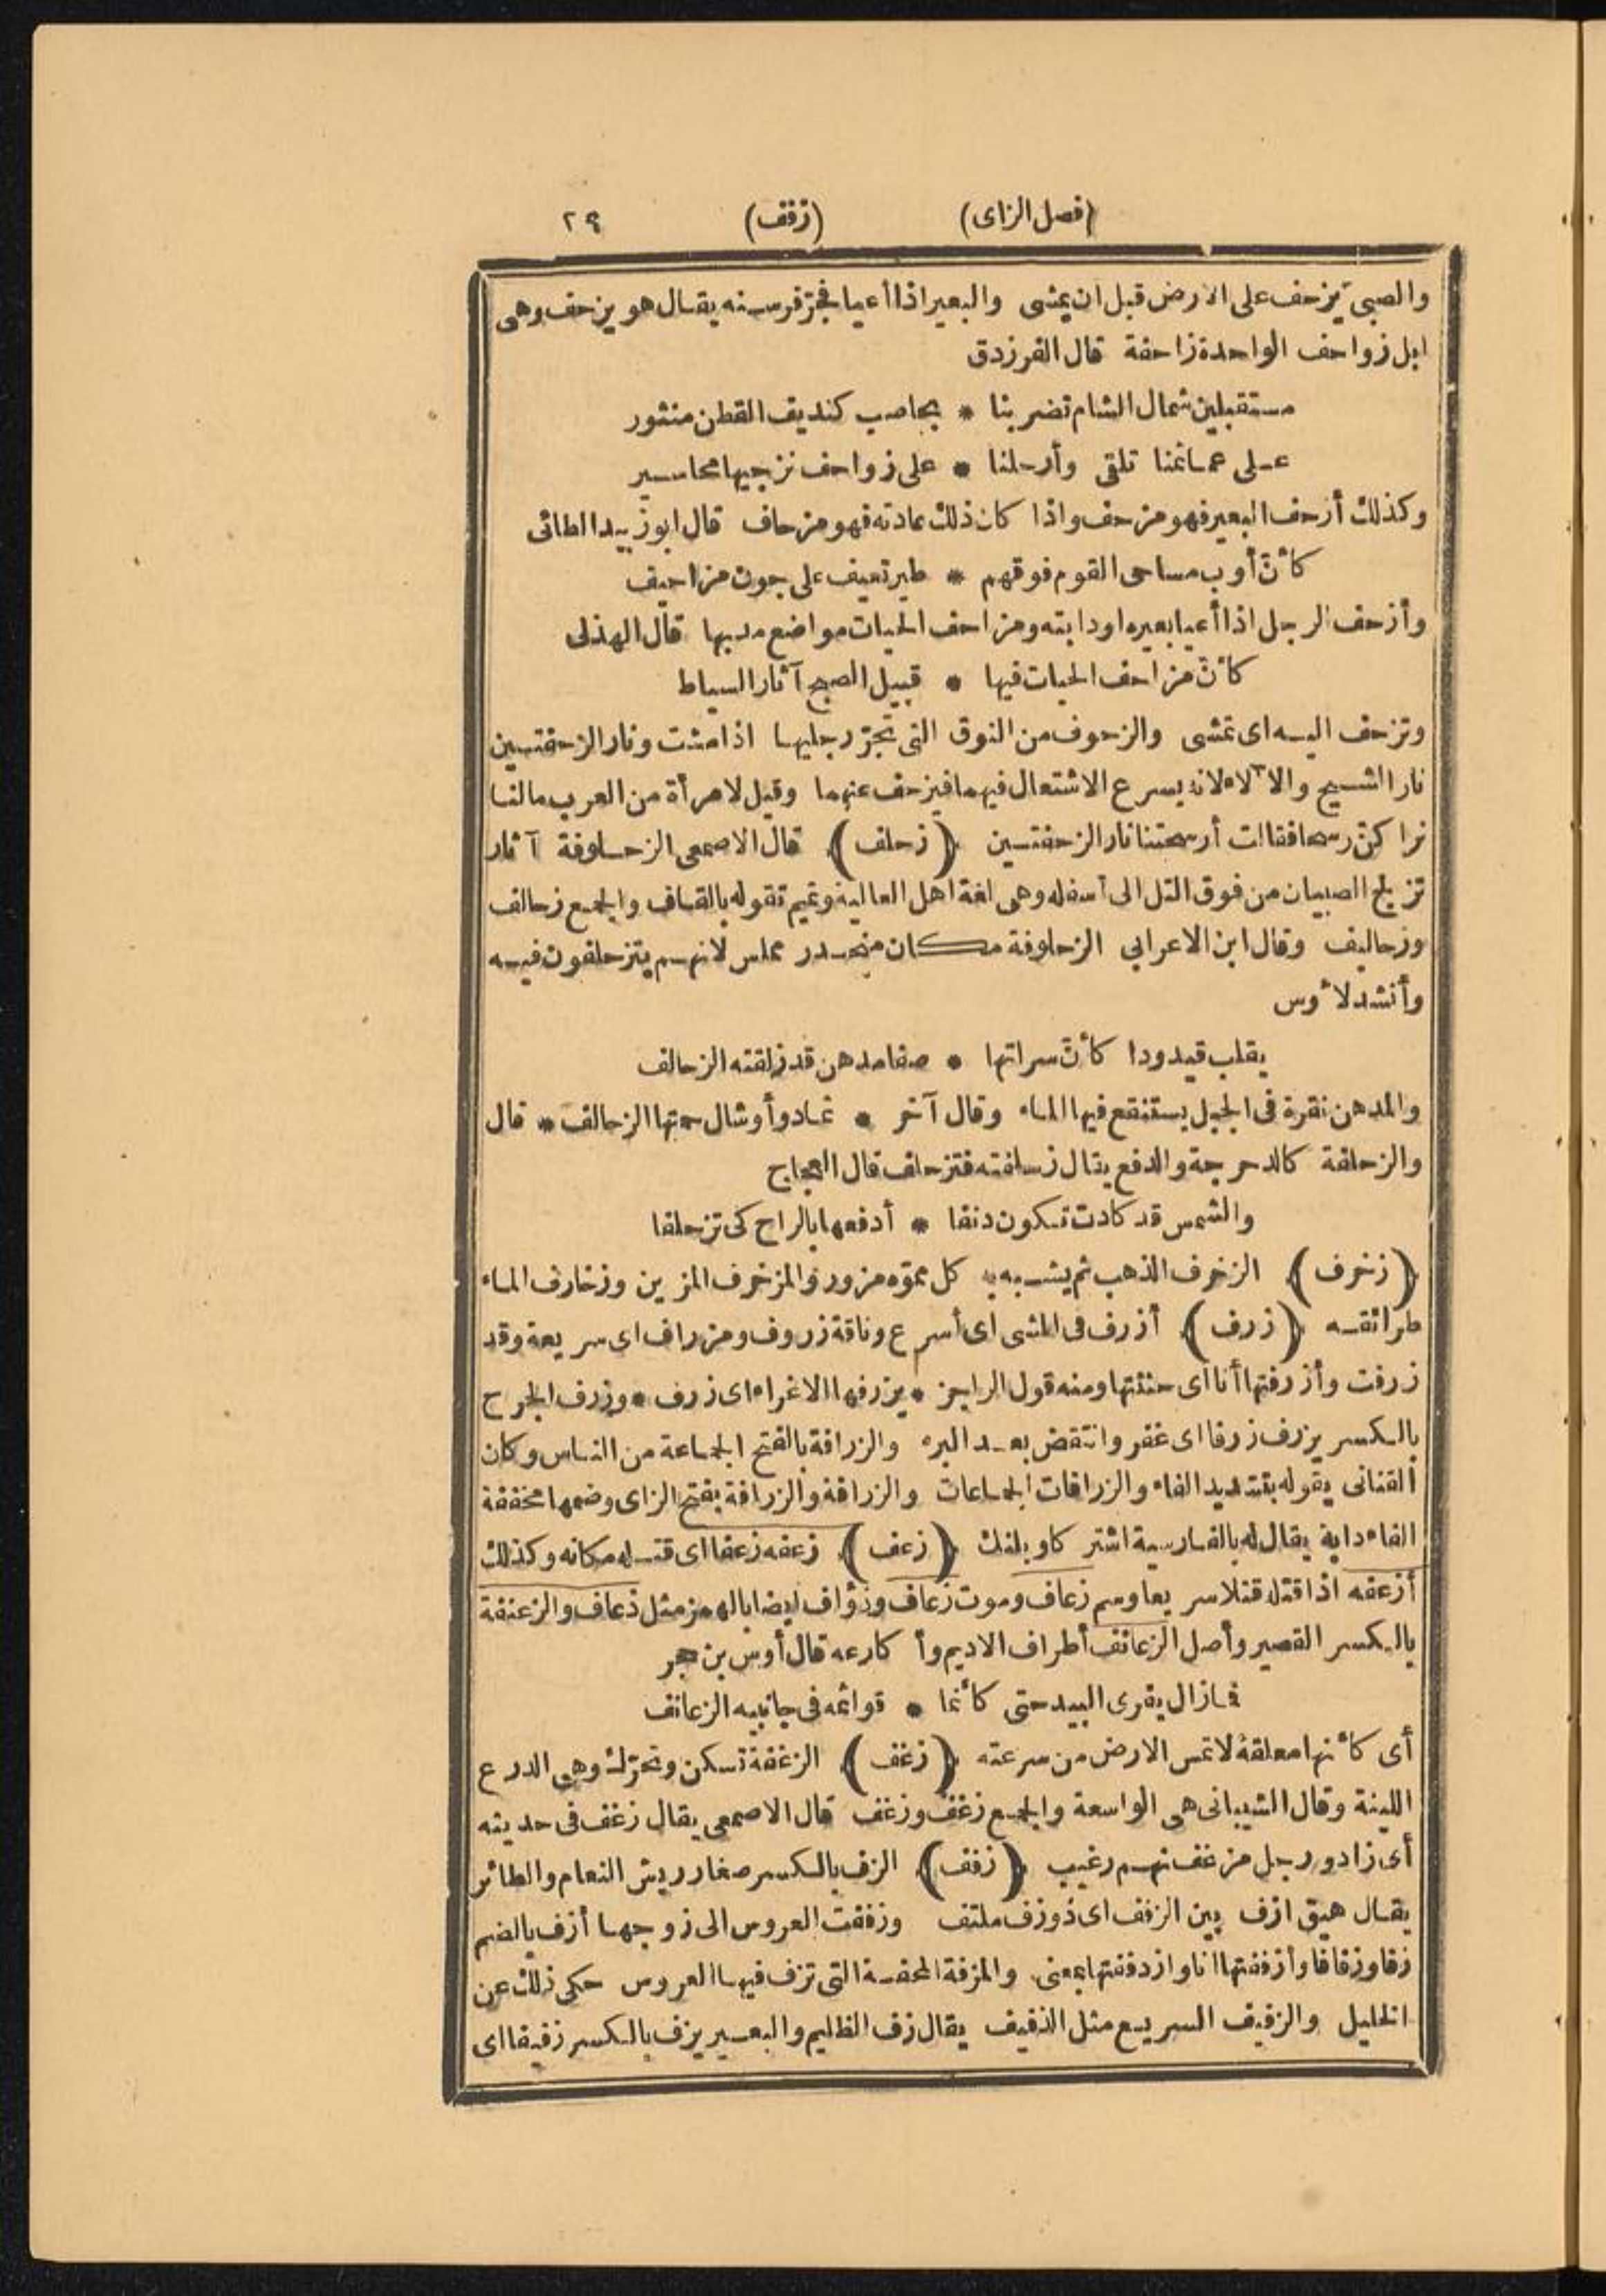 (فصل الزاى) (زفف) ٢٩
والصبىّ يزحف على الارض قبل ان يمشى والبعير اذا أعيا فجرّ فرسنه يقال هو يزحف وهى
ابل زواحف الواحدة زاحفة قال الفرزدق
مستقبلين شمال الشام تضربنا * بحاصب كنديف القطن منثور
على عمائمنا تلقى وأرحلنا * على زواحف نزجيها محاسير
وكذلك أزحف البعير فهو مزحف واذا كان ذلك عادته فهو مزحاف قال ابو زبيد الطائى
كأنّ أوب مساحى القوم فوقهم * طير تعيف على جون مزاحيف
وأزحف الرجل اذا أعيا بعيره او دابته ومزاحف الحيات مواضع مدبها قال الهذلى
كأنّ مزاحف الحيات فيها * قبيل الصبح آثار السياط
وتزحف اليه اى تمشى والزحوف من النوق التى تجرّ رجليها اذا مشت ونار الزحفتين
نار الشيح والالاء لانه يسرع الاشتعال فيهما فيزحف عنهما وقيل لامرأة من العرب مالنا
نراكنّ رسحا فقالت أرسحتنا نار الزحفتين (زحلف) قال الاصمعى الزحلوفة آثار
تزلج الصبيان من فوق التل الى أسفله وهى لغة اهل العالية وتميم تقوله بالقاف والجمع زحالف
وزحاليف وقال ابن الاعرابي الزحلوفة مكان منحدر مملس لانهم يتزحلفون فيه
وأنشد لأوس
يقلب قيدودا كأنّ سراتها * صفا مدهن قد زلقته الزحالف
والمدهن نقرة فى الجبل يستنقع فيها الماء وقال آخر * ثماد وأوشال حمتها الزحالف * قال
والزحلفة كالدحرجة والدفع يقال زحلفته فتزحلف قال العجاج
والشمس قد كادت تكون دنفا * أدفعها بالراح كى تزحلفا
(زخرف) الزخرف الذهب ثم يشبه به كل مموّه مزور والمزخرف المزين وزخارف الماء
طرائقه (زرف) أزرف فى المشى اى أسرع وناقة زروف ومزراف اى سريعة وقد
زرفت وأزرفتها أنا اى حثثتها ومنه قول الراجز * يزرفها الاغراء اى زرف * وزرف الجرح
بالكسر يزرف زرفا اى غفر وانتقض بعد البرء والزرافة بالفتح الجماعة من الناس وكان
القنانى يقوله بتشديد الفاء والزرافات الجماعات والزرافة والزرافة بفتح الزاى وضمها مخففة
الفاء دابة يقال له بالفارسية اشتر كاو بلنك (زعف) زعفه زعفا اى قتله مكانه وكذلك
أزعفه اذا قتله قتلا سريعا وسم زعاف وموت زعاف وزؤاف ايضا بالهمز مثل ذعاف والزعنفة
بالكسر القصير وأصل الزعانف أطراف الاديم وأكارعه قال أوس بن حجر
فما زال يفرى البيد حتى كأنما * قوائمه فى جانبيه الزعانف
أى كأنها معلقة لا تمس الارض من سرعته (زغف) الزغفة تسكن وتحرّك وهى الدرع
اللينة وقال الشيبانى هى الواسعة والجمع زغف وزغف قال الاصمعى يقال زغف فى حديثه
أى زاد ورجل مزغف نهم رغيب (زفف) الزف بالكسر صغار ريش النعام والطائر
يقال هيق ازف بين الزفف اى ذو زف ملتف وزففت العروس الى زوجها أزف بالضم
زفا وزفافا وأزففتها انا وازدففتها بمعنى والمزفة المحفة التى تزف فيها العروس حكى ذلك عن
الخليل والزفيف السريع مثل الذفيف يقال زف الظليم والبعير يزف بالكسر زفيفا اى